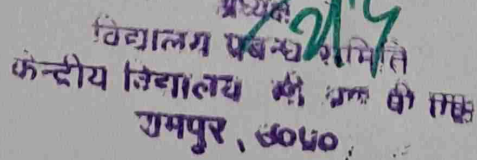 अध्यक्ष
विद्यालय प्रबन्ध समिति
केन्द्रीय विद्यालय सी
रामपुर, उ०प्र०,